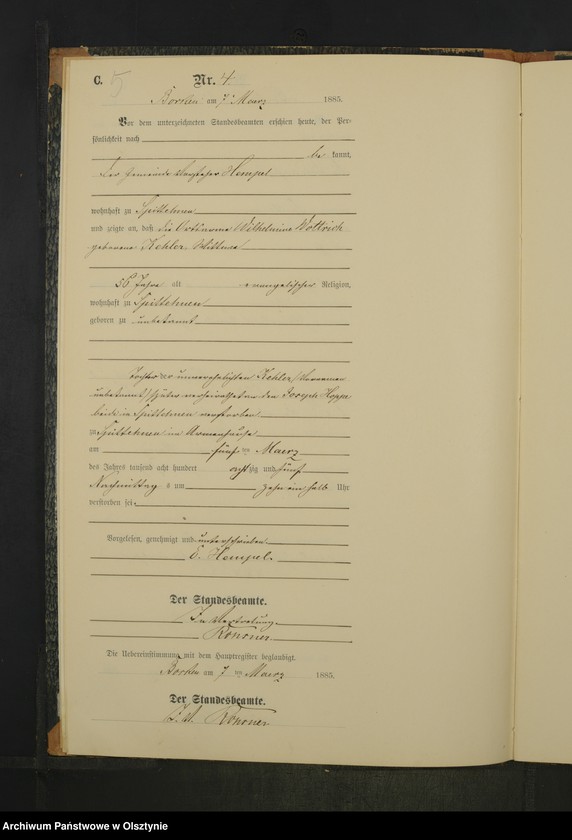 C. 5 Nr. 4.
Borken am 7. Maerz 1885.
Vor dem unterzeichneten Standesbeamten erschien heute, der Per-
sönlichkeit nach
be kannt,
der Gemeindevorsteher Hempel
wohnhaft zu Spittehnen
und zeigte an, daß die Ortsarme Wilhelmine Wottrich
geborene Kehler, Wittwe
56 Jahre alt evangelischer Religion,
wohnhaft zu Spittehnen
geboren zu unbekannt
Tochter der unverehelichten Kehler, Vornamen
unbekannt, später verheiratheten den Joseph Hoppe
beide in Spittehnen verstorben
zu Spittehnen im Armenhause
am fünf ten Maerz
des Jahres tausend acht hundert achtzig und fünf
Nachmittag s um zehn ein halb Uhr
verstorben sei
Vorgelesen, genehmigt und unterschrieben
E. Hempel.
Der Standesbeamte.
In Vertretung
Die Uebereinstimmung mit dem Hauptregister beglaubigt.
Borken am 7 ten Maerz 1885.
Der Standesbeamte.
I. V.
Archiwum Państwowe w Olsztynie